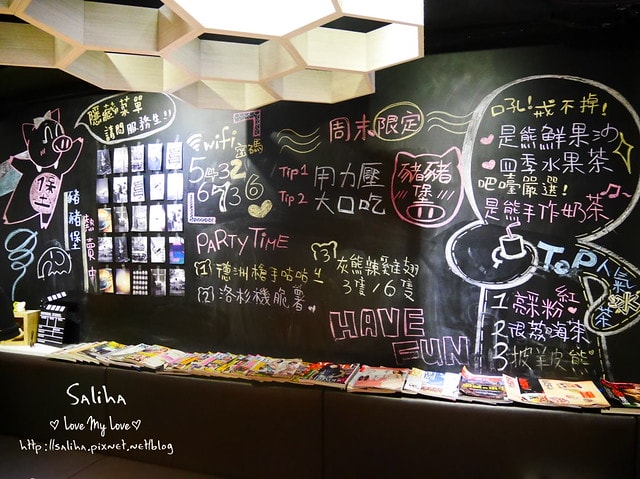 隱藏菜單
請問服務生!!
堡
豬豬堡
熱賣中
wifi
密碼
周末限定
Tip 1 用力壓
Tip 2 大口吃
豬豬
堡
PARTY TIME
[1] 穗洲槍手咕咕!!
[2] 洛杉機脆薯
[3] 灰熊辣雞翅
3隻/6隻
HAVE
FUN
吼!戒不掉!
是熊鮮果沙
四季水果茶
吧檯嚴選!
是熊手作奶茶
TOP 人氣
冰茶
1 粉紅
2 很荔嗨茶
3 披羊皮熊
Saliha
Love My Love
http://saliha.pixnet.net/blog